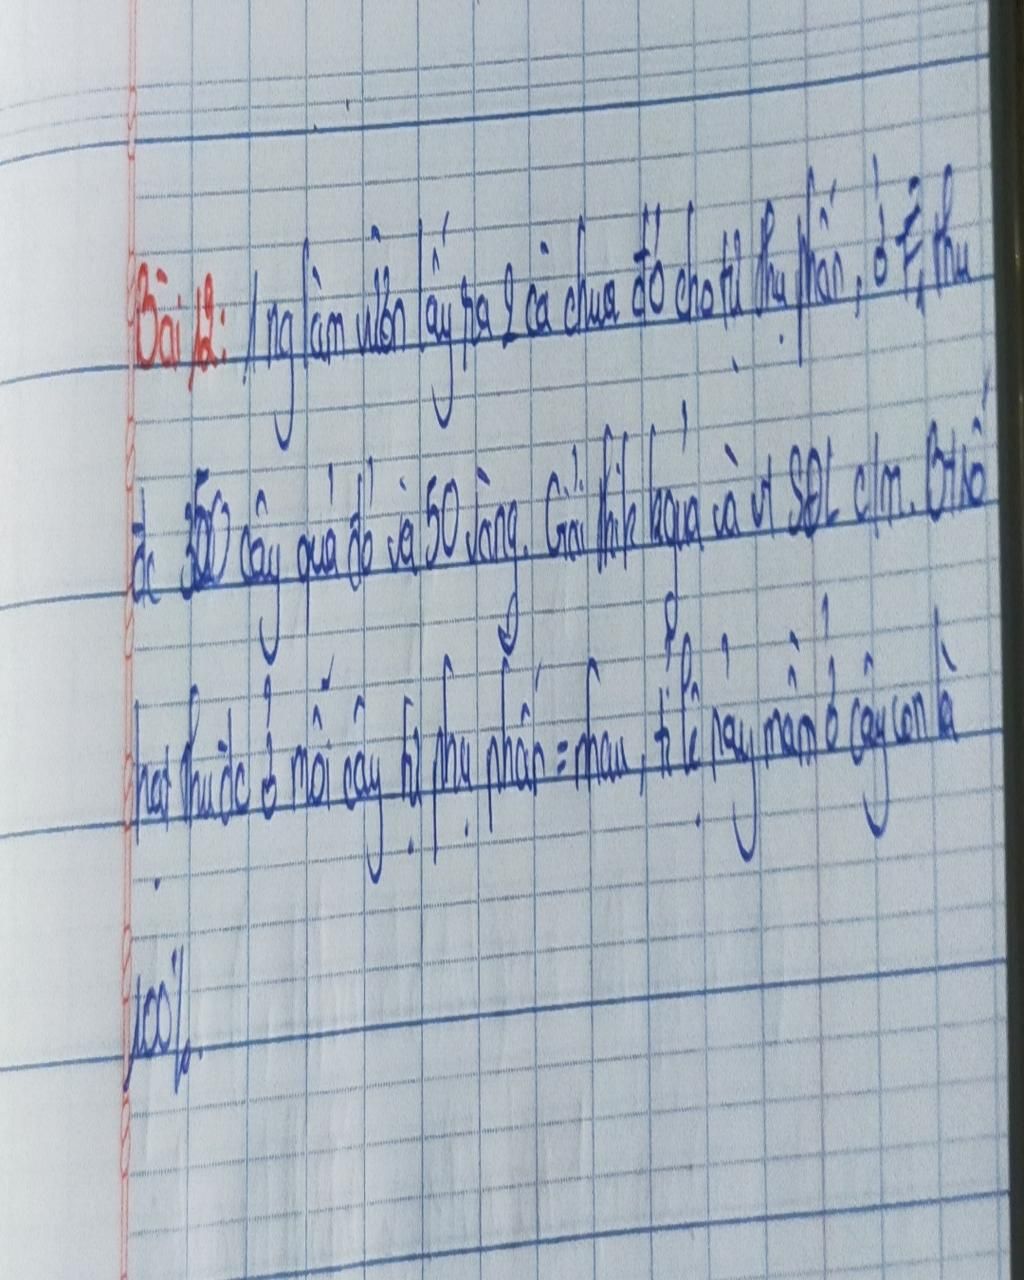 Bài 12: 1 ng làm vườn lấy ra 2 cà chua đỏ cho tự thụ phấn, ở F1 thu
đc 350 cây quả đỏ và 50 vàng. Giải thích kquả và vt SĐL c/m. Bt số
hạt thu đc ở mỗi cây tự thụ phấn = nhau, tỉ lệ nảy mầm ở cây con là
100%.